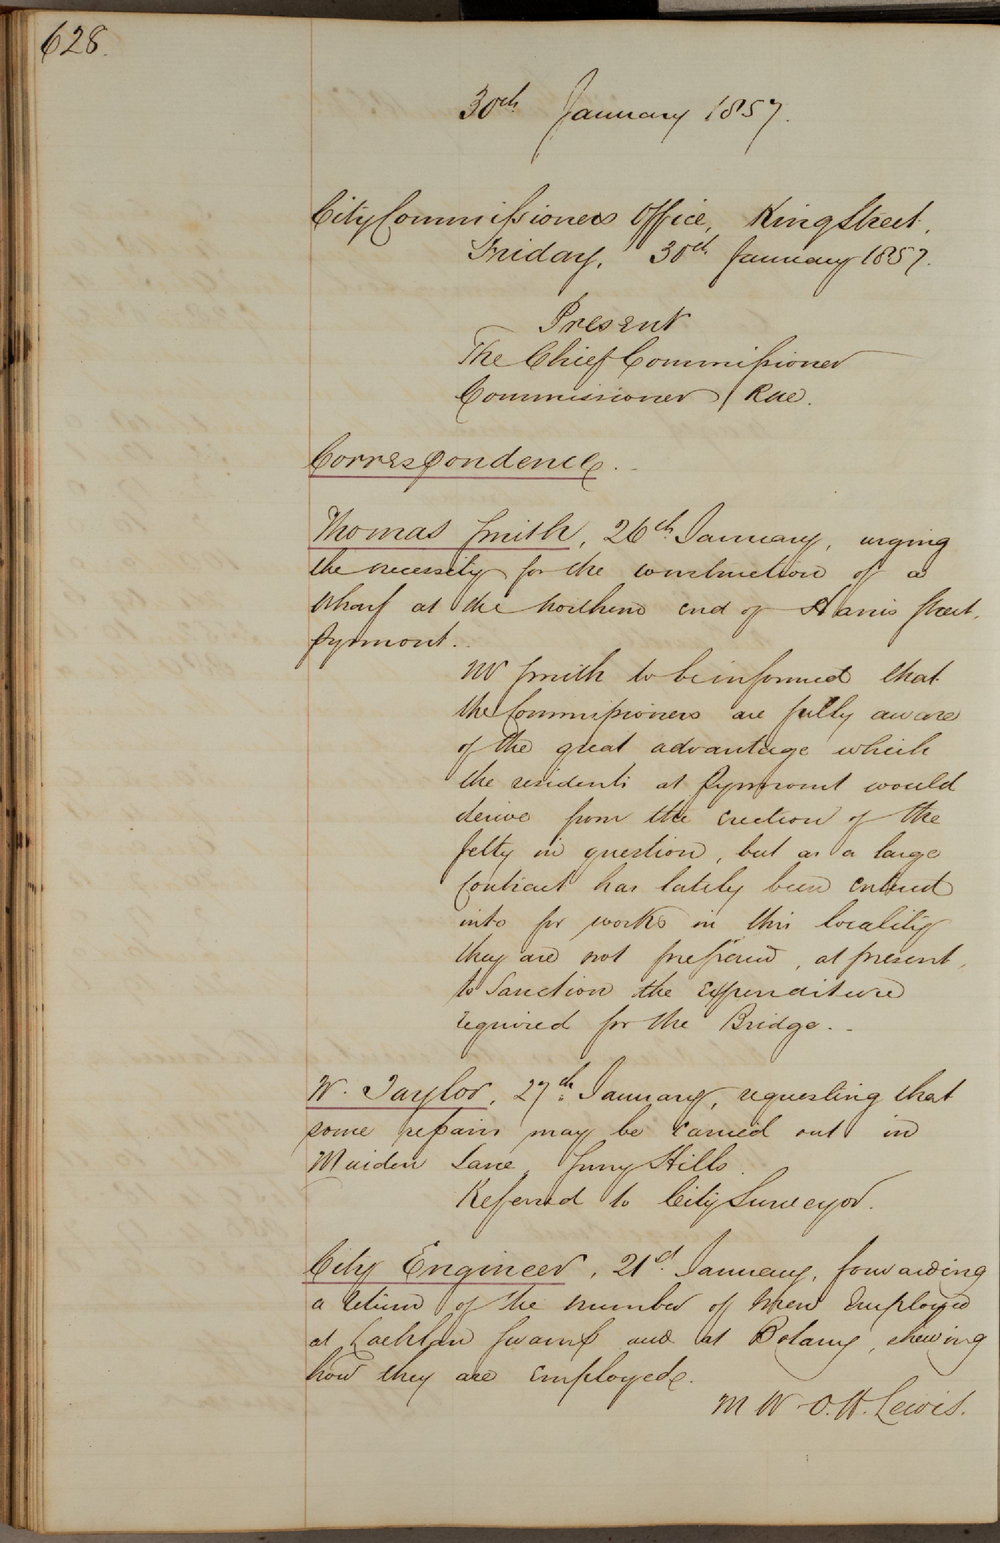 628.
30th January 1857.
City Commissioners Office, King Street,
Friday, 30th January 1857.
Present
The Chief Commissioner
Commissioner Rae.
Correspondence.
Thomas Smith, 26th January, urging
the necessity for the construction of a
Wharf at the northern end of Harris Street,
Pyrmont.
Mr Smith to be informed that
the Commissioners are fully aware
of the great advantage which
the residents at Pyrmont would
derive from the erection of the
Jetty in question, but as a large
Contract has lately been entered
into for works in this locality
they are not prepared, at present,
to Sanction the expenditure
required for the Bridge.
W. Taylor, 27th January, requesting that
some repairs may be carried out in
Maiden Lane, Surry Hills.
Referred to City Surveyor.
City Engineer, 21st January, forwarding
a return of the number of men employed
at Lachlan Swamp and at Botany, shewing
how they are employed.
M W O. H. Lewis.